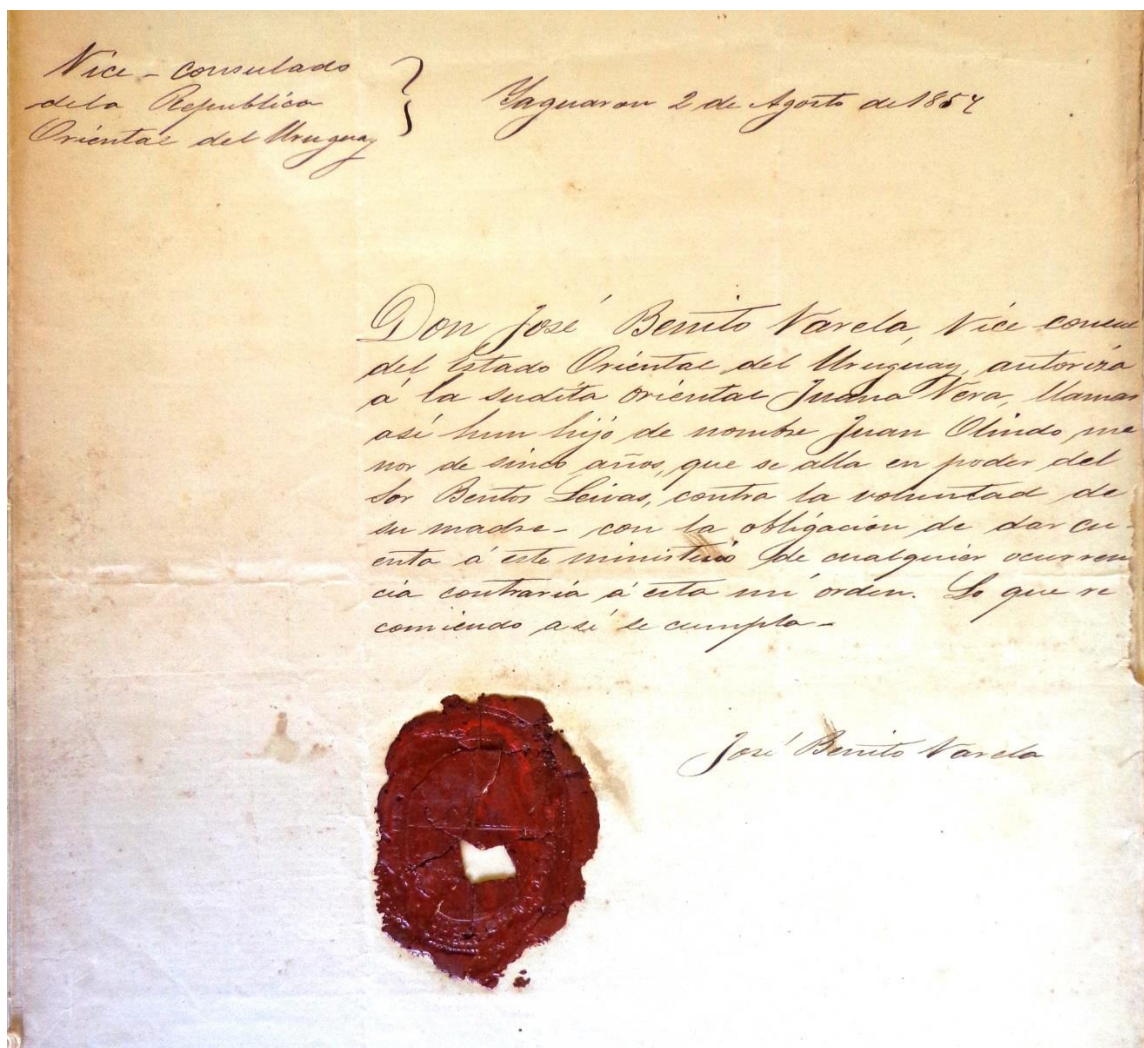 Vice-consulado
dela Republica
Oriental del Uruguay
Yaguaron 2 de Agosto de 1854
Don José Benito Varela, Vice consul
del Estado Oriental del Uruguay, autoriza
á la sudita oriental Juana Vera, llamar
así hum hijo de nombre Juan Olindo, me
nor de sinco años, que se alla en poder del
Sor Bentos Leivas, contra la voluntad de
su madre - con la obligacion de dar cu-
enta á este ministerio de cualquier ocurren
cia contraria á esta mi orden. Lo que re
comiendo así se cumpla -
José Benito Varela